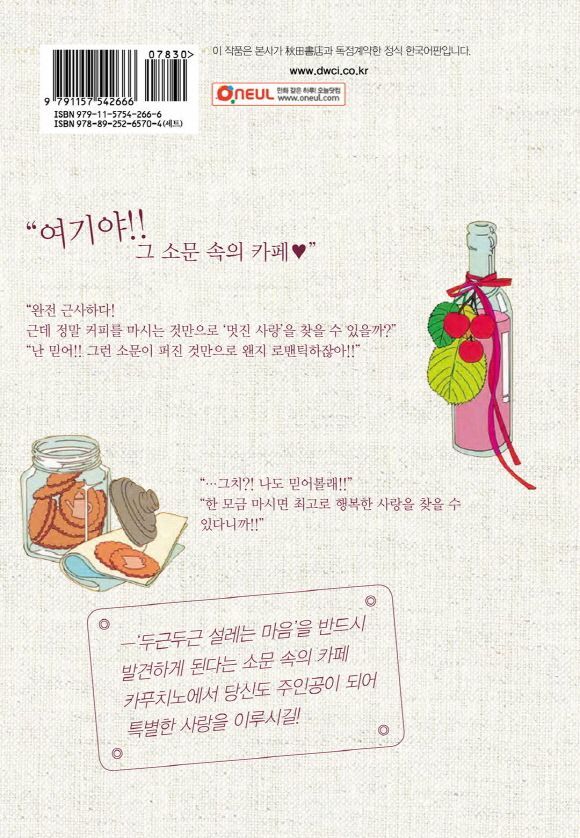 07830>
9 791157 542666
ISBN 979-11-5754-266-6
ISBN 978-89-252-6570-4(세트)
이 작품은 본사가 秋田書店과 독점계약한 정식 한국어판입니다.
www.dwci.co.kr
ONEUL 만화 같은 하루! 오늘닷컴
www.oneul.com
“여기야!!
그 소문 속의 카페♥”
“완전 근사하다!
근데 정말 커피를 마시는 것만으로 ‘멋진 사랑’을 찾을 수 있을까?”
“난 믿어!! 그런 소문이 퍼진 것만으로 왠지 로맨틱하잖아!!”
“…그치?! 나도 믿어볼래!!”
“한 모금 마시면 최고로 행복한 사랑을 찾을 수
있다니까!!”
—‘두근두근 설레는 마음’을 반드시
발견하게 된다는 소문 속의 카페
카푸치노에서 당신도 주인공이 되어
특별한 사랑을 이루시길!